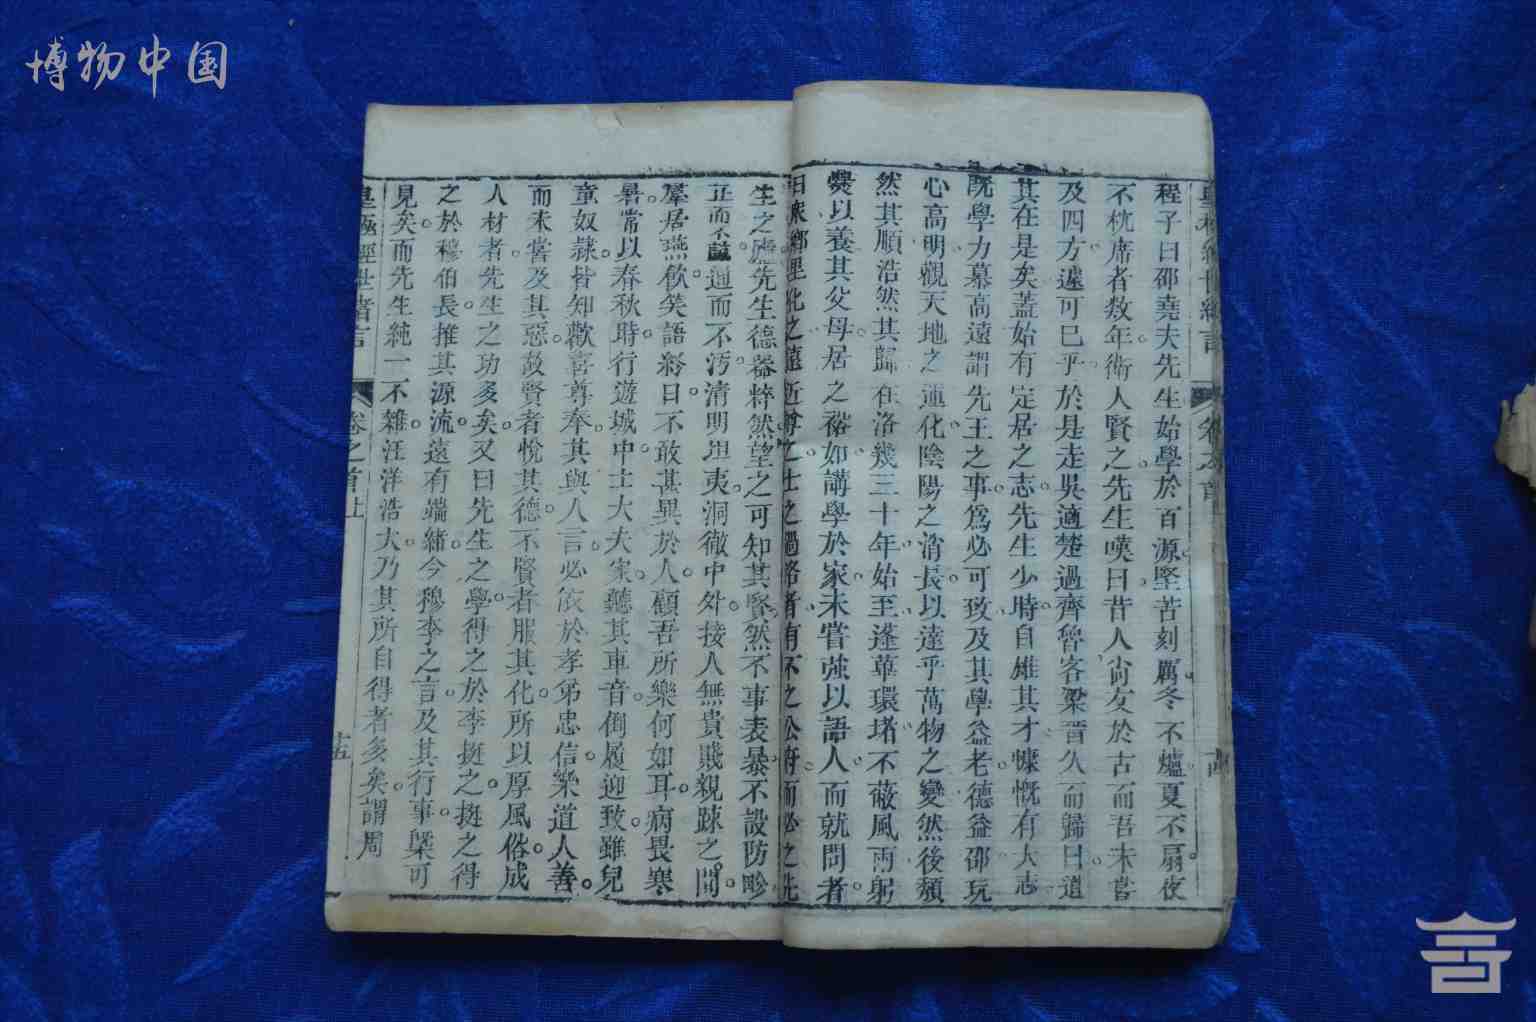 博物中国
程子曰邵堯夫先生始學於百源堅苦刻厲冬不爐夏不扇夜
不枕席者数年衛人賢之先生嘆曰昔人尙友於古而吾未嘗
及四方遽可已乎於是走吳適楚過齊魯客梁晉久而歸曰道
其在是矣蓋始有定居之志先生少時自雄其才慷慨有大志
既學力慕高遠謂先王之事爲必可致及其學益老德益邵玩
心高明觀天地之運化陰陽之消長以達乎萬物之變然後頹
然其順浩然其歸在洛幾三十年始至蓬蓽環堵不蔽風雨躬
爨以養其父母居之裕如講學於家未嘗強以語人而就問者
日衆鄉里化之遠近尊之士之過洛者有不之公府而必之先
生之廬先生德器粹然望之可知其賢然不事表暴不設防畛
正而不諒通而不汚清明坦夷洞徹中外接人無貴賤親踈之間
羣居燕飲笑語終日不敢甚異於人顧吾所樂何如耳病畏寒
暑常以春秋時行遊城中士大夫家聽其車音倒履迎致雖兒
童奴隷皆知歡喜尊奉其與人言必依於孝弟忠信樂道人善
而未嘗及其惡故賢者悅其德不賢者服其化所以厚風俗成
人材者先生之功多矣又曰先生之學得之於李挺之挺之得
之於穆伯長推其源流遠有端緒今穆李之言及其行事槩可
見矣而先生純一不雜汪洋浩大乃其所自得者多矣謂周
皇極經世緒言 卷之首上 十五